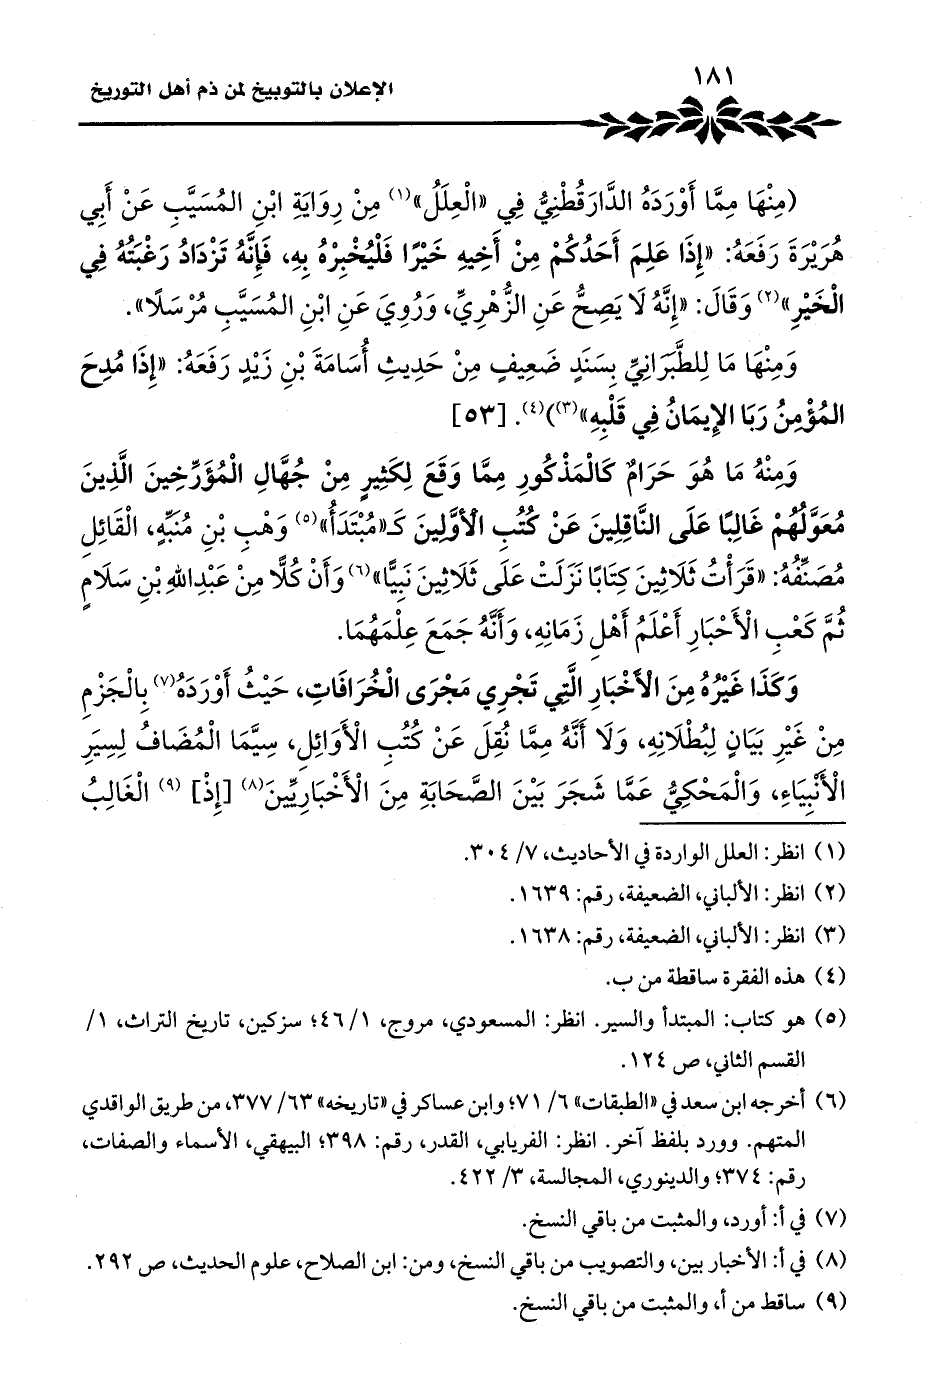 ١٨١
الإعلان بالتوبيخ لمن ذم أهل التوريخ
(مِنْهَا مِمَّا أَوْرَدَهُ الدَّارَقُطْنِيُّ فِي «الْعِلَلُ»(١) مِنْ رِوَايَةِ ابْنِ المُسَيَّبِ عَنْ أَبِي
هُرَيْرَةَ رَفَعَهُ: «إِذَا عَلِمَ أَحَدُكُمْ مِنْ أَخِيهِ خَيْرًا فَلْيُخْبِرْهُ بِهِ، فَإِنَّهُ تَزْدَادُ رَغْبَتُهُ فِي
الْخَيْرِ»(٢) وَقَالَ: «إِنَّهُ لَا يَصِحُّ عَنِ الزُّهْرِيِّ، وَرُوِيَ عَنِ ابْنِ المُسَيَّبِ مُرْسَلًا».
وَمِنْهَا مَا لِلطَّبَرَانِيِّ بِسَنَدٍ ضَعِيفٍ مِنْ حَدِيثِ أُسَامَةَ بْنِ زَيْدٍ رَفَعَهُ: «إِذَا مُدِحَ
المُؤْمِنُ رَبَا الإِيمَانُ فِي قَلْبِهِ»(٣))(٤). [٥٣]
وَمِنْهُ مَا هُوَ حَرَامٌ كَالمَذْكُورِ مِمَّا وَقَعَ لِكَثِيرٍ مِنْ جُهَّالِ الْمُؤَرِّخِينَ الَّذِينَ
مُعَوَّلُهُمْ غَالِبًا عَلَى النَّاقِلِينَ عَنْ كُتُبِ الأَوَّلِينَ كَـ«مُبْتَدَأُ»(٥) وَهْبِ بْنِ مُنَبِّهٍ، الْقَائِلِ
مُصَنِّفُهُ: «قَرَأْتُ ثَلَاثِينَ كِتَابًا نَزَلَتْ عَلَى ثَلَاثِينَ نَبِيًّا»(٦) وَأَنْ كُلًّا مِنْ عَبْدِاللهِ بْنِ سَلَامٍ
ثُمَّ كَعْبِ الْأَحْبَارِ أَعْلَمُ أَهْلِ زَمَانِهِ، وَأَنَّهُ جَمَعَ عِلْمَهُمَا.
وَكَذَا غَيْرُهُ مِنَ الْأَخْبَارِ الَّتِي تَجْرِي مَجْرَى الْخُرَافَاتِ، حَيْثُ أَوْرَدَهُ(٧) بِالْجَزْمِ
مِنْ غَيْرِ بَيَانٍ لِبُطْلَانِهِ، وَلَا أَنَّهُ مِمَّا نُقِلَ عَنْ كُتُبِ الأَوَائِلِ، سِيَّمَا الْمُضَافُ لِسِيَرِ
الْأَنْبِيَاءِ، وَالْمَحْكِيُّ عَمَّا شَجَرَ بَيْنَ الصَّحَابَةِ مِنَ الْأَخْبَارِيِّينَ(٨) [إِذْ] (٩) الْغَالِبُ
(١) انظر: العلل الواردة في الأحاديث، ٧/ ٣٠٤.
(٢) انظر: الألباني، الضعيفة، رقم: ١٦٣٩.
(٣) انظر: الألباني، الضعيفة، رقم: ١٦٣٨.
(٤) هذه الفقرة ساقطة من ب.
(٥) هو كتاب: المبتدأ والسير. انظر: المسعودي، مروج، ١/ ٤٦؛ سزكين، تاريخ التراث، ١/
القسم الثاني، ص ١٢٤.
(٦) أخرجه ابن سعد في «الطبقات» ٦/ ٧١؛ وابن عساكر في «تاريخه» ٦٣/ ٣٧٧، من طريق الواقدي
المتهم. وورد بلفظ آخر. انظر: الفريابي، القدر، رقم: ٣٩٨؛ البيهقي، الأسماء والصفات،
رقم: ٣٧٤؛ والدينوري، المجالسة، ٣/ ٤٢٢.
(٧) في أ: أورد، والمثبت من باقي النسخ.
(٨) في أ: الأخبار بين، والتصويب من باقي النسخ، ومن: ابن الصلاح، علوم الحديث، ص ٢٩٢.
(٩) ساقط من أ، والمثبت من باقي النسخ.